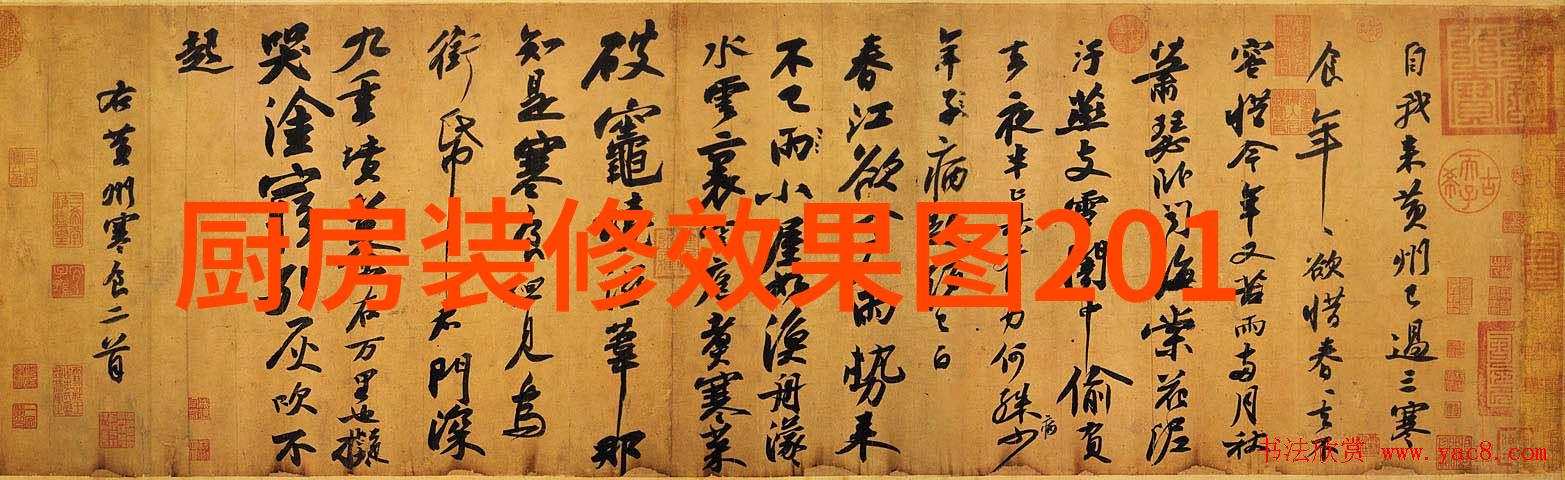 自我来黄州已過三寒
食年〻欲惜春〻去不
容惜今年又苦雨兩月秋
蕭瑟卧聞海棠花泥
汙燕支雪闇中偷負
去夜半真有力何殊少
病
年子病起頭已白
春江欲入户雨勢来
不已雨小屋如漁舟濛
水雲裏空庖煮寒菜
破竈燒濕葦那
知是寒食但見烏
銜帋君門深
九重墳墓在万里也擬
哭塗窮死灰吹不
起
右黄州寒食二首
厨房装修效果图201
书法欣赏
www.yac8.com